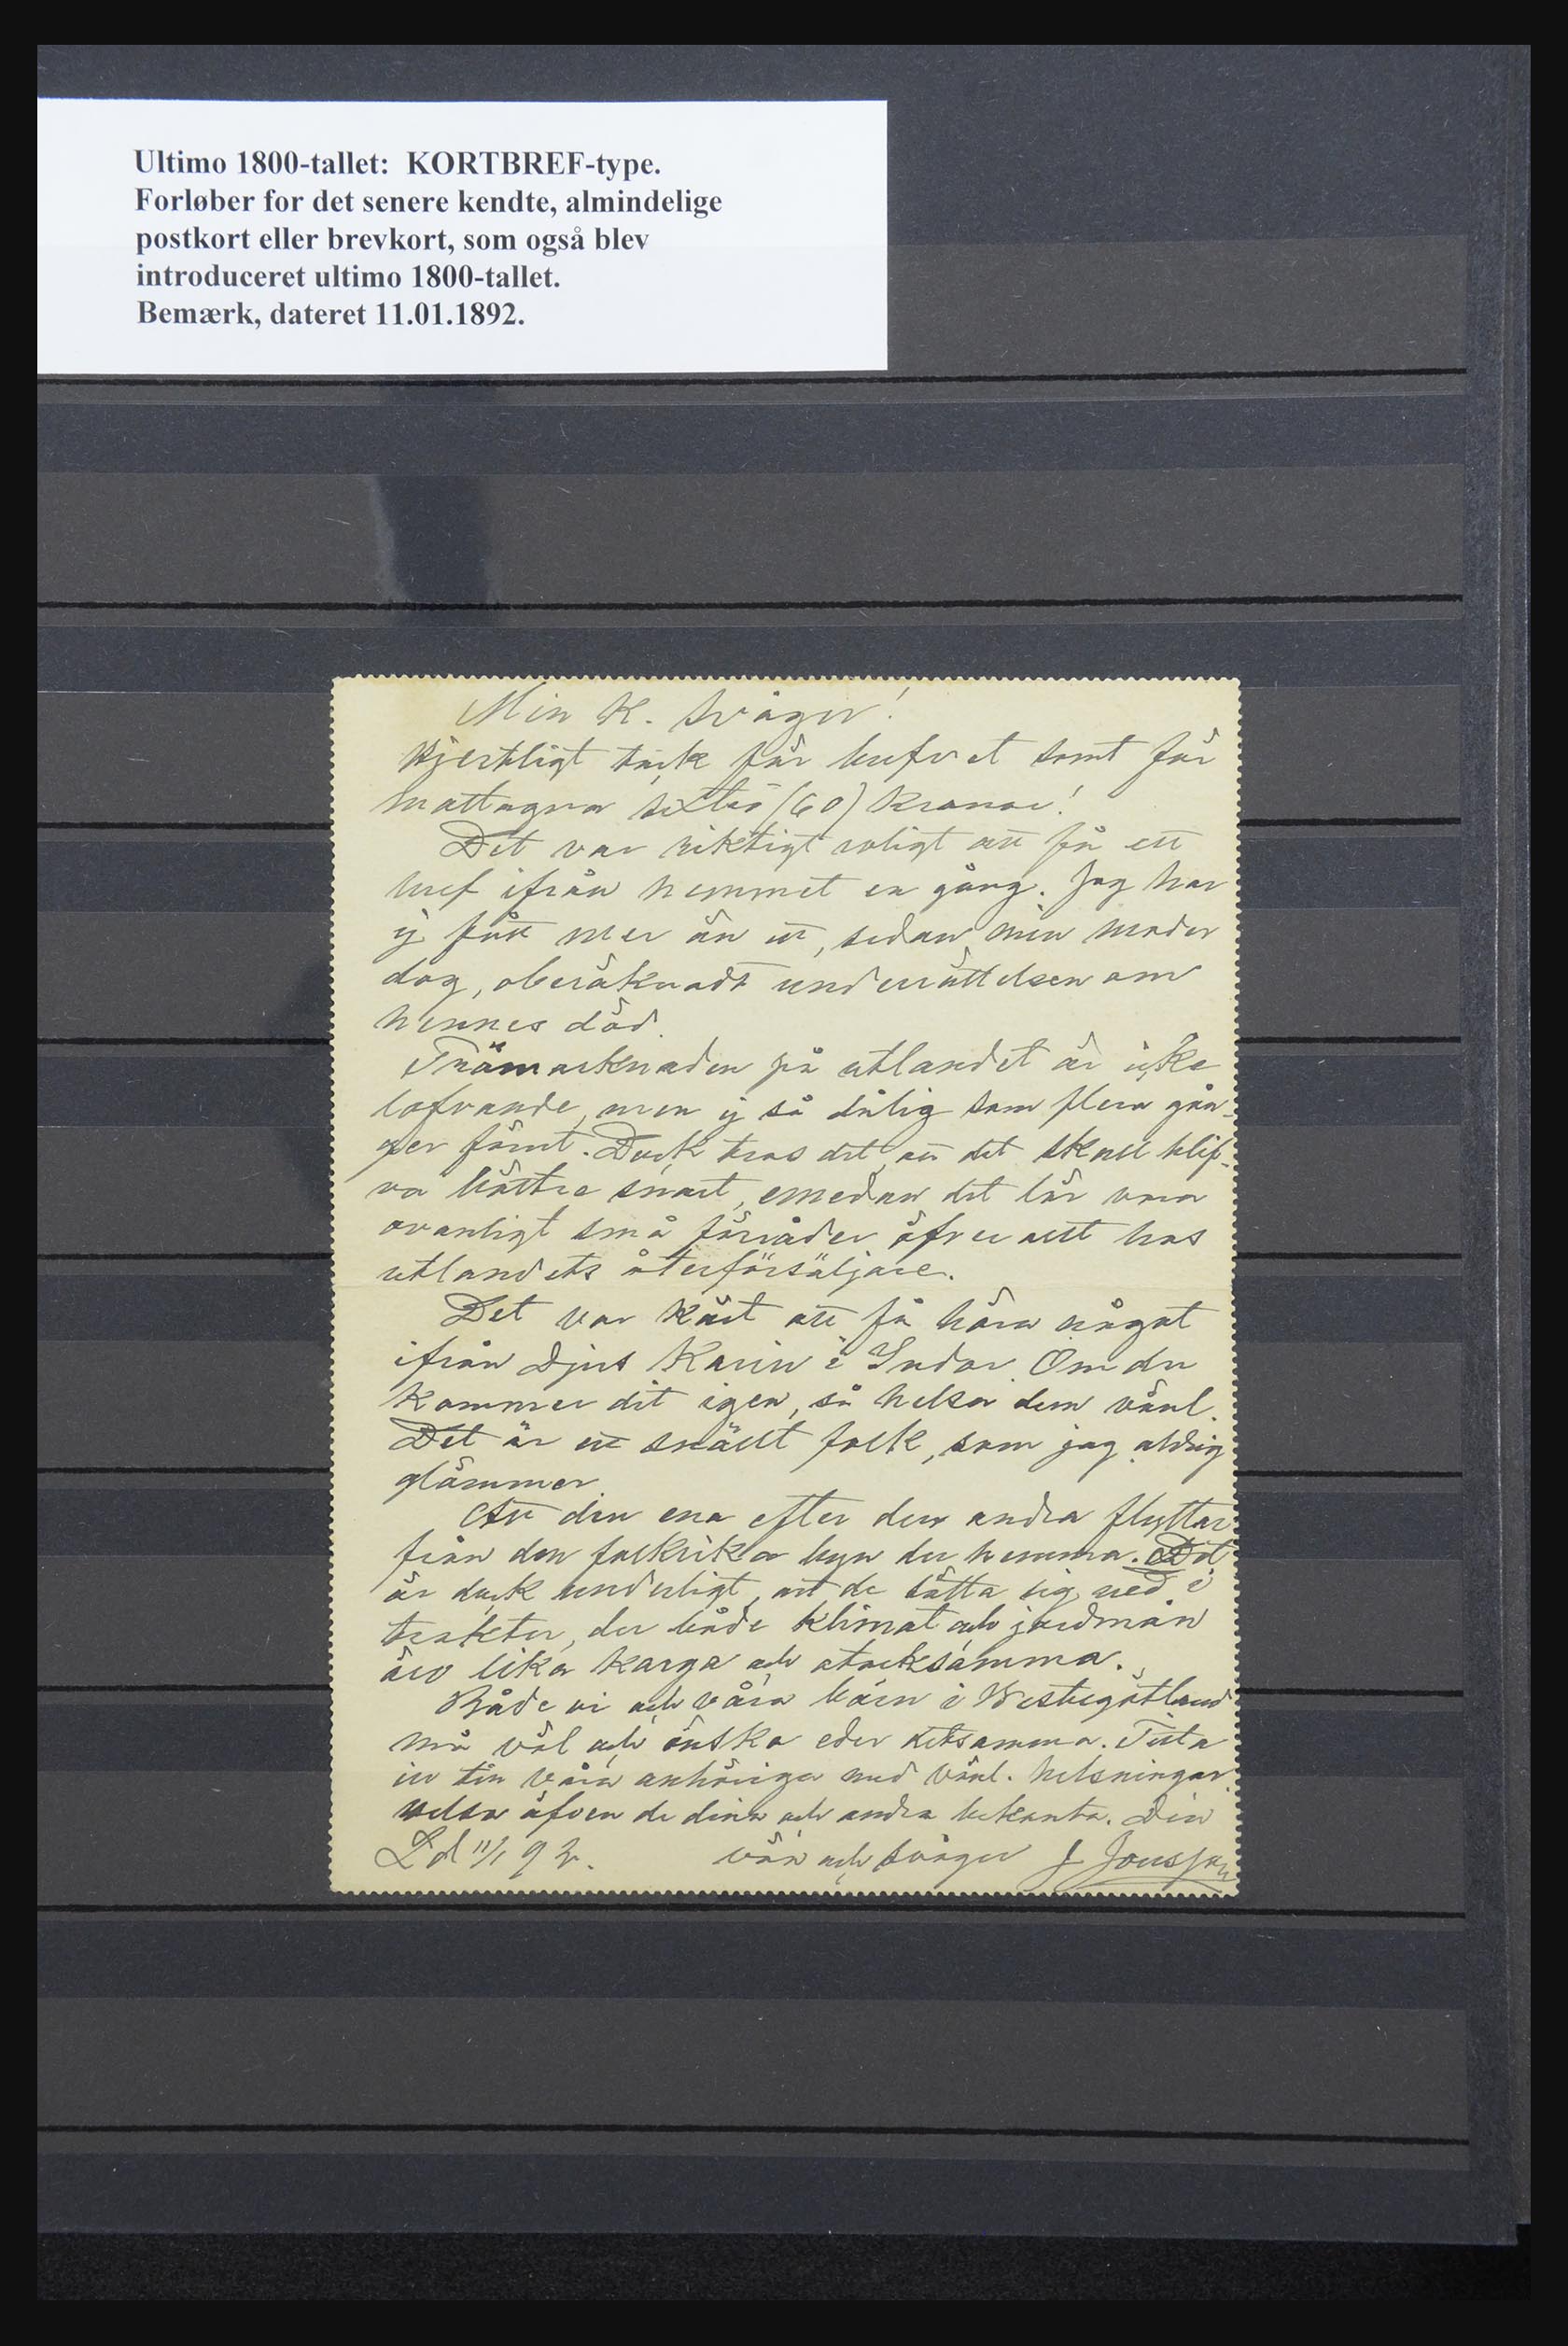 Ultimo 1800-tallet: KORTBREF-type.
Forløber for det senere kendte, almindelige
postkort eller brevkort, som også blev
introduceret ultimo 1800-tallet.
Bemærk, dateret 11.01.1892.
Min K. Svåger!
Hjertligt tack för brefvet samt för
mottagna sextio (60) kronor!
Det var riktigt roligt att få ett
bref ifrån hemmet en gång. Jag har
ej fått mer än ett, sedan min moder
dog, oberäknadt underrättelsen om
hennes död.
Trämarknaden på utlandet är icke
lofvande, men ej så dålig som flera gån-
ger förut. Dock tros det, att det skall blif-
va bättre snart, emedan det lär vara
ovanligt små förråder öfver allt hos
utlandets återförsäljare.
Det var kärt att få höra något
ifrån Djus Karin i Indor. Om du
kommer dit igen, så helsa dem vänl.
Det är ett snällt folk, som jag aldrig
glömmer.
Att den ena efter den andra flyttar
från den folkrika byn der hemma. Det
är dock underligt, att de sätta sig ned i
trakter, der både klimat och jordmån
äro lika karga och otacksamma.
Både vi och våra barn i Westergötland
må väl och önska eder detsamma. Titta
in till våra anhöriga med vänl. helsningar.
Helsa äfven de dina och andra bekanta. Din
L d 11/1 92. vän och svåger J Jonsson